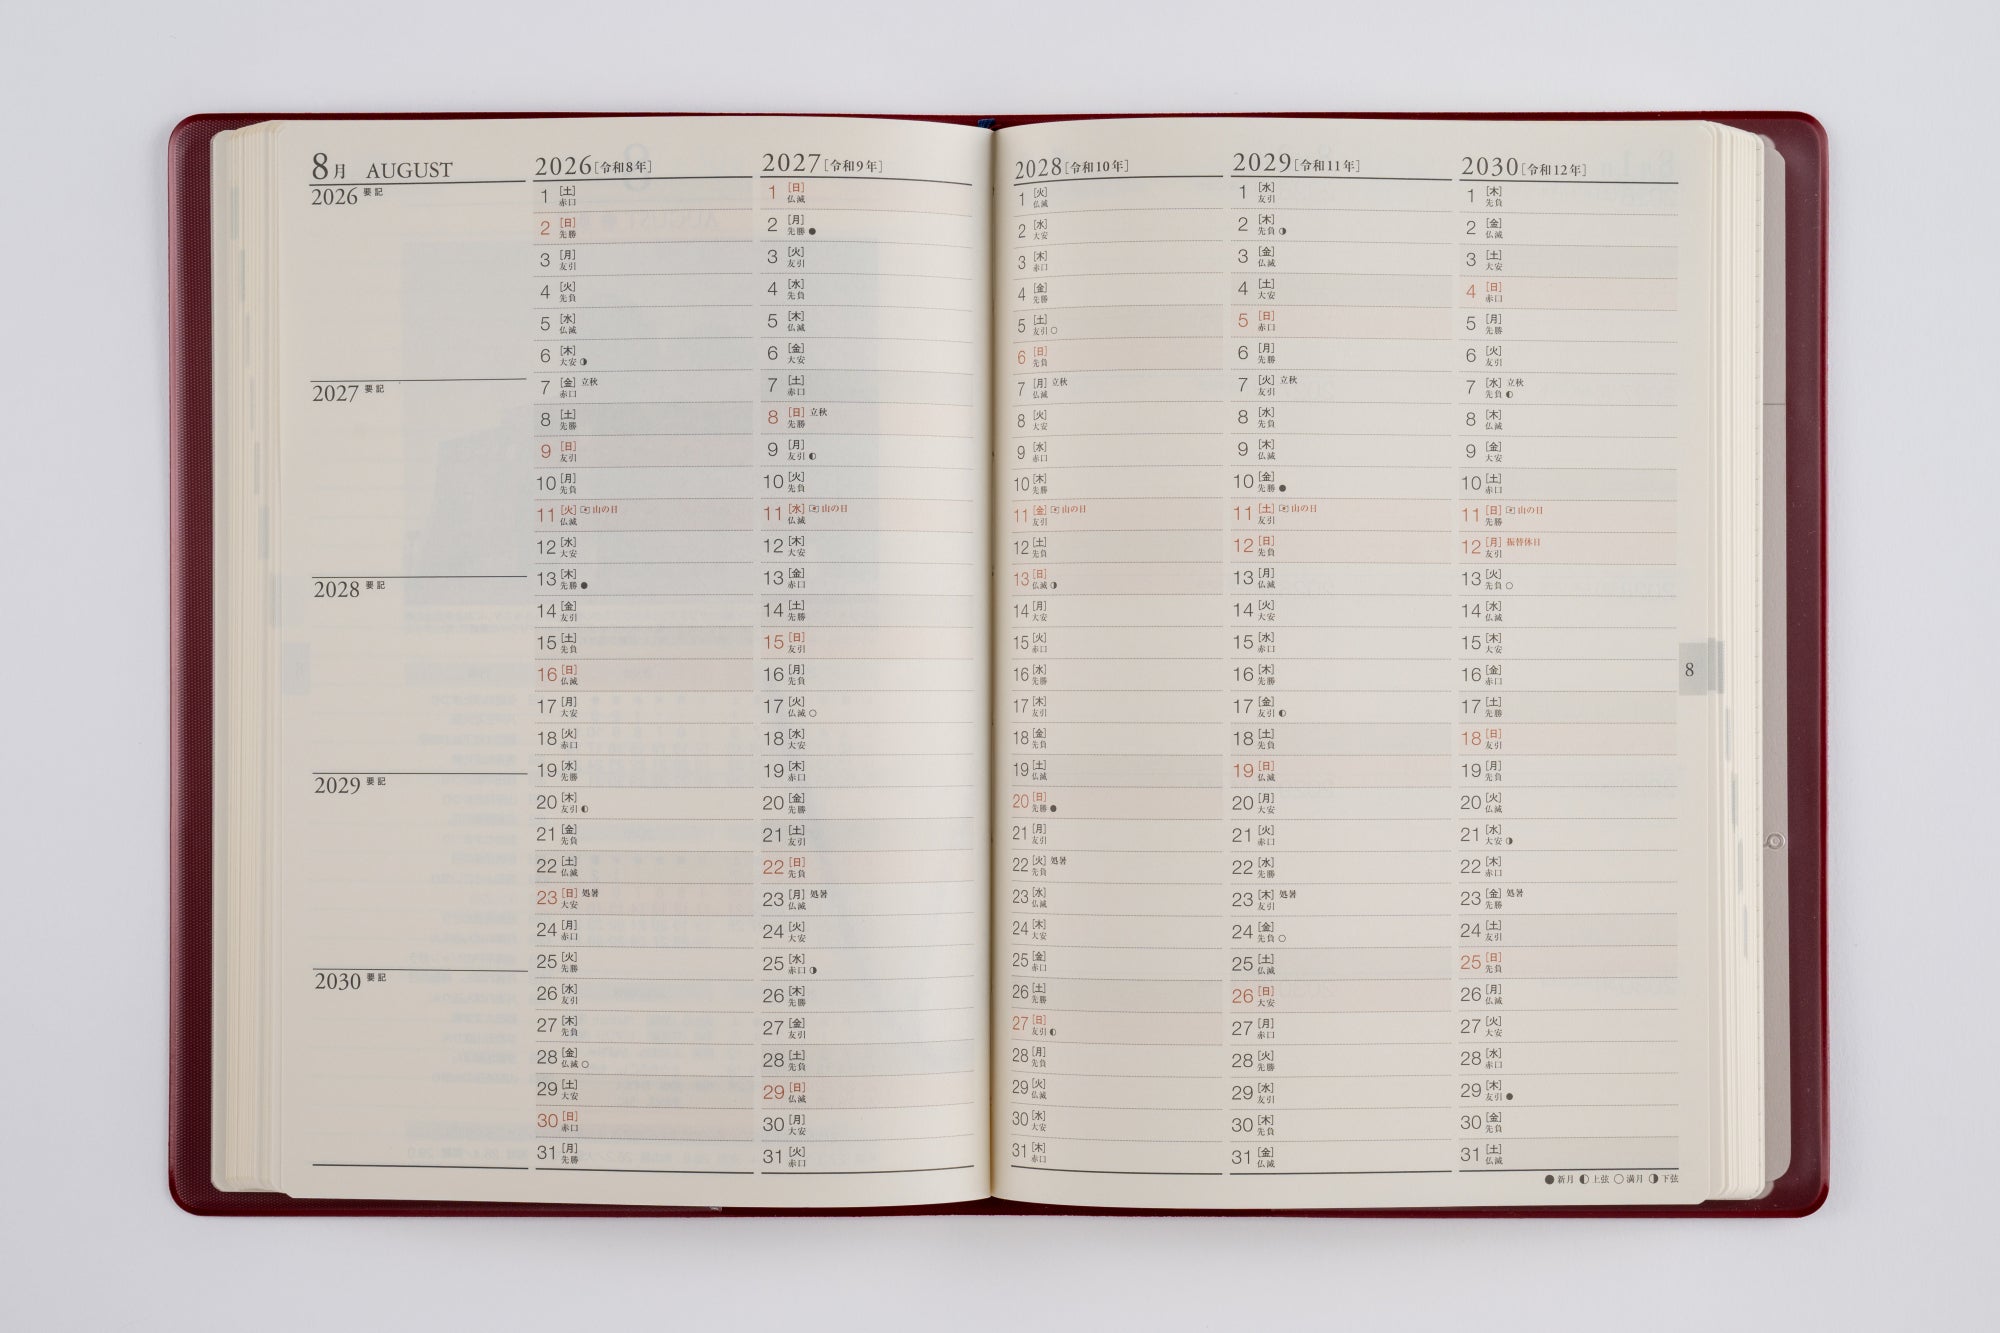 8月 AUGUST
2026 要記
2027 要記
2028 要記
2029 要記
2030 要記
2026[令和8年]
1 [土] 赤口
2 [日] 先勝
3 [月] 友引
4 [火] 先負
5 [水] 仏滅
6 [木] 大安◑
7 [金] 立秋 赤口
8 [土] 先勝
9 [日] 友引
10 [月] 先負
11 [火] 山の日 仏滅
12 [水] 大安
13 [木] 先勝●
14 [金] 友引
15 [土] 先負
16 [日] 仏滅
17 [月] 大安
18 [火] 赤口
19 [水] 先勝
20 [木] 友引◐
21 [金] 先負
22 [土] 仏滅
23 [日] 処暑 大安
24 [月] 赤口
25 [火] 先勝
26 [水] 友引
27 [木] 先負
28 [金] 仏滅○
29 [土] 大安
30 [日] 赤口
31 [月] 先勝
2027[令和9年]
1 [日] 仏滅
2 [月] 先勝●
3 [火] 友引
4 [水] 先負
5 [木] 仏滅
6 [金] 大安
7 [土] 赤口
8 [日] 立秋 先勝
9 [月] 友引◐
10 [火] 先負
11 [水] 山の日 仏滅
12 [木] 大安
13 [金] 赤口
14 [土] 先勝
15 [日] 友引
16 [月] 先負
17 [火] 仏滅○
18 [水] 大安
19 [木] 赤口
20 [金] 先勝
21 [土] 友引
22 [日] 先負
23 [月] 処暑 仏滅
24 [火] 大安
25 [水] 赤口◑
26 [木] 先勝
27 [金] 友引
28 [土] 先負
29 [日] 仏滅
30 [月] 大安
31 [火] 赤口
2028[令和10年]
1 [火] 仏滅
2 [水] 大安
3 [木] 赤口
4 [金] 先勝
5 [土] 友引○
6 [日] 先負
7 [月] 立秋 仏滅
8 [火] 大安
9 [水] 赤口
10 [木] 先勝
11 [金] 山の日 友引
12 [土] 先負
13 [日] 仏滅◑
14 [月] 大安
15 [火] 赤口
16 [水] 先勝
17 [木] 友引
18 [金] 先負
19 [土] 仏滅
20 [日] 先勝●
21 [月] 友引
22 [火] 処暑 先負
23 [水] 仏滅
24 [木] 大安
25 [金] 赤口
26 [土] 先勝
27 [日] 友引◐
28 [月] 先負
29 [火] 仏滅
30 [水] 大安
31 [木] 赤口
2029[令和11年]
1 [水] 友引
2 [木] 先負◑
3 [金] 仏滅
4 [土] 大安
5 [日] 赤口
6 [月] 先勝
7 [火] 立秋 友引
8 [水] 先負
9 [木] 仏滅
10 [金] 先勝●
11 [土] 山の日 友引
12 [日] 先負
13 [月] 仏滅
14 [火] 大安
15 [水] 赤口
16 [木] 先勝
17 [金] 友引◐
18 [土] 先負
19 [日] 仏滅
20 [月] 大安
21 [火] 赤口
22 [水] 先勝
23 [木] 処暑 友引
24 [金] 先負○
25 [土] 仏滅
26 [日] 大安
27 [月] 赤口
28 [火] 先勝
29 [水] 友引
30 [木] 先負
31 [金] 仏滅
2030[令和12年]
1 [木] 先負
2 [金] 仏滅
3 [土] 大安
4 [日] 赤口
5 [月] 先勝
6 [火] 友引
7 [水] 立秋 先負◐
8 [木] 仏滅
9 [金] 大安
10 [土] 赤口
11 [日] 山の日 先勝
12 [月] 振替休日 友引
13 [火] 先負○
14 [水] 仏滅
15 [木] 大安
16 [金] 赤口
17 [土] 先勝
18 [日] 友引
19 [月] 先負
20 [火] 仏滅
21 [水] 大安◑
22 [木] 赤口
23 [金] 処暑 先勝
24 [土] 友引
25 [日] 先負
26 [月] 仏滅
27 [火] 大安
28 [水] 赤口
29 [木] 友引●
30 [金] 先負
31 [土] 仏滅
8
●新月 ◐上弦 ○満月 ◑下弦